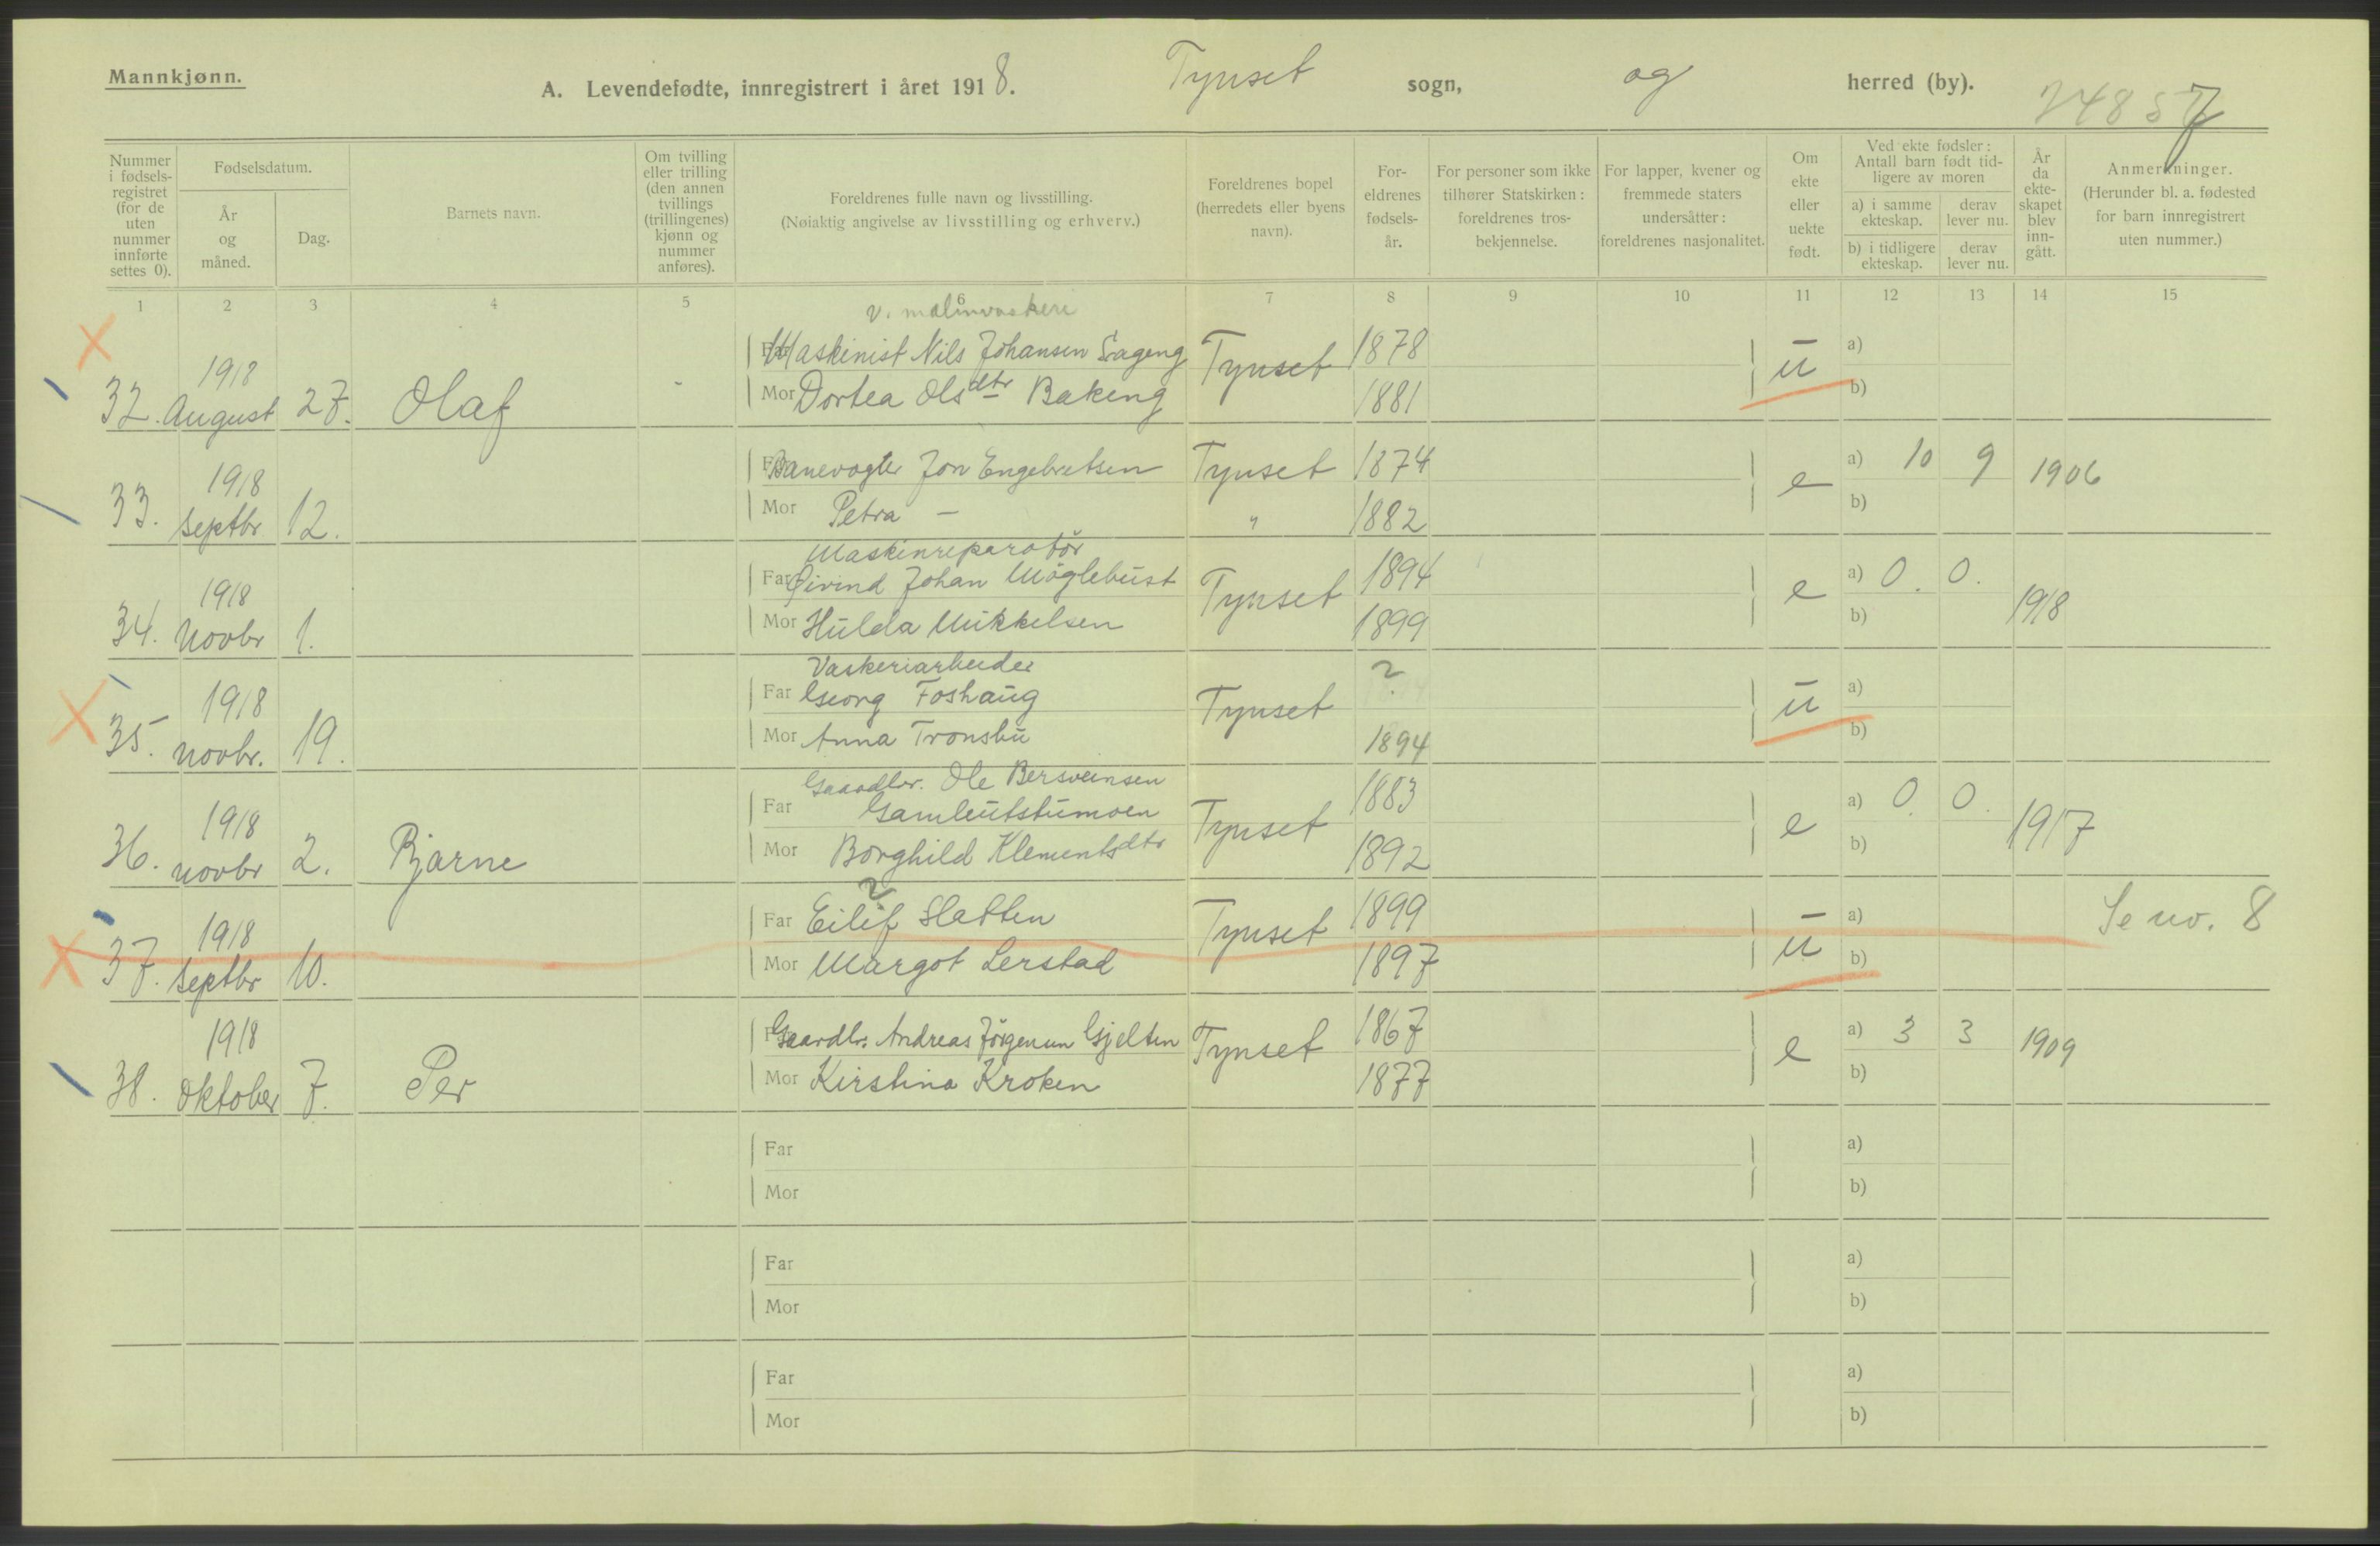 Mannkjønn.
A. Levendefødte, innregistrert i året 1918. Tynset sogn, og herred (by).
Nummer i fødsels-registret (for de uten nummer innførte settes 0).
Fødselsdatum.
År og måned.
Dag.
Barnets navn.
Om tvilling eller trilling (den annen tvillings (trillingenes) kjønn og nummer anføres).
Foreldrenes fulle navn og livsstilling.
(Nøiaktig angivelse av livsstilling og erhverv.)
Foreldrenes bopel (herredets eller byens navn).
For-eldrenes fødsels-år.
For personer som ikke tilhører Statskirken: foreldrenes tros-bekjennelse.
For lapper, kvener og fremmede staters undersåtter: foreldrenes nasjonalitet.
Om ekte eller uekte født.
Ved ekte fødsler: Antall barn født tid-ligere av moren
a) i samme ekteskap.
derav lever nu.
b) i tidligere ekteskap.
derav lever nu.
År da ekte-skapet blev inn-gått.
Anmerkninger.
(Herunder bl. a. fødested for barn innregistrert uten nummer.)
1 2 3 4 5 6 7 8 9 10 11 12 13 14 15
v. malmvaskeri
32. 1918 August 27. Olaf - Far Maskinist Nils Johansen Sageng Tynset 1878 u a)
Mor Dortea Olsdtr Bakeng 1881 b)
33. 1918 septbr 12. Far Banevogter Jon Engebretsen Tynset 1874 e a) 10 9 1906
Mor Petra — " 1882 b)
Maskinreparatör
34. 1918 Novbr 1. Far Øivind Johan Möglebust Tynset 1894 e a) 0. 0. 1918
Mor Hulda Mikkelsen 1899 b)
Vaskeriarbeider
35. 1918 novbr. 19. Far Georg Foshaug Tynset ? u a)
Mor Anna Tronsbu 1894 b)
Gaardbr. Ole Bersveinsen
36. 1918 novbr 2. Bjarne Far Gamleutstumoen Tynset 1883 e a) 0 0. 1917
Mor Borghild Klementsdtr 1892 b)
?
37. 1918 septbr 10. Far Eilif Slatten Tynset 1899 u a) Se nv. 8
Mor Margot Lerstad 1897 b)
38. 1918 Oktober 7. Per Far Gaardbr. Andreas Jörgensen Gjelten Tynset 1867 e a) 3 3 1909
Mor Kirstina Kroken 1877 b)
Far a)
Mor b)
Far a)
Mor b)
Far a)
Mor b)